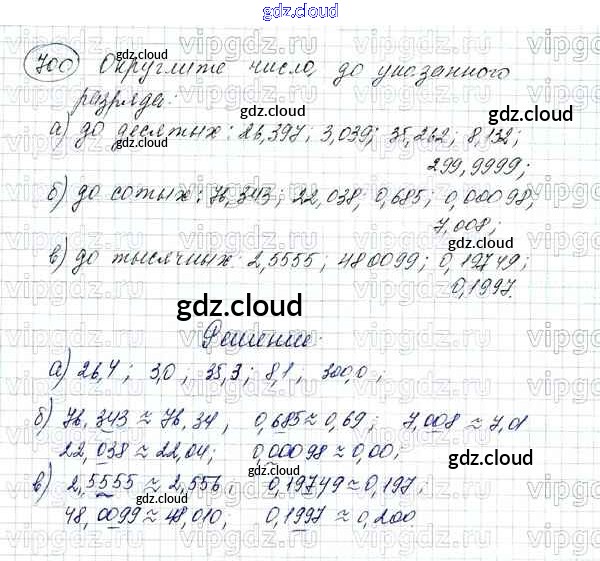 gdz.cloud
700 Округлите число, до указанного
разряда:
а) до десятых: 26,397; 3,039; 35,262; 8,132;
299,9999;
б) до сотых: 76,343; 22,038, 0,685; 0,00098;
7,008;
в) до тысячных: 2,5555; 480099; 0,19749;
0,1997.
gdz.cloud
Решение:
а) 26,4; 3,0, 35,3; 8,1, 300,0;
б) 76,343 ≈ 76,34, 0,685 ≈ 0,69; 7,008 ≈ 7,01
22,038 ≈ 22,04; 0,00098 ≈ 0,00;
в) 2,5555 ≈ 2,556, 0,19749 ≈ 0,197;
48,0099 ≈ 48,010, 0,1997 ≈ 0,200